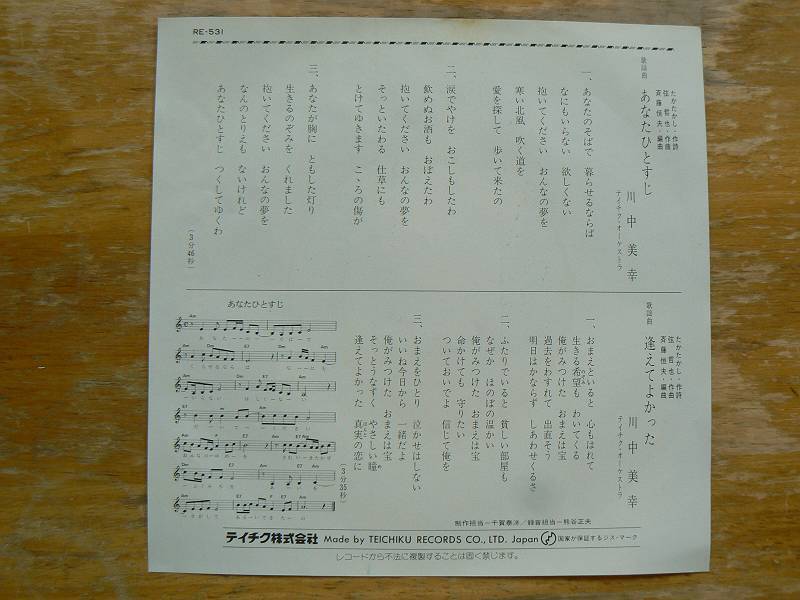 RE-531
歌謡曲
あなたひとすじ
たかたかし・作詩
弦哲也・作曲
斉藤恒夫・編曲
川中美幸
テイチク・オーケストラ
一、あなたのそばで 暮らせるならば
なにもいらない 欲しくない
抱いてください おんなの夢を
寒い北風 吹く道を
愛を探して 歩いて来たの
二、涙でやけを おこしもしたわ
飲めぬお酒も おぼえたわ
抱いてください おんなの夢を
そっといたわる 仕草にも
とけてゆきます こゝろの傷が
三、あなたが胸に ともした灯り
生きるのぞみを くれました
抱いてください おんなの夢を
なんのとりえも ないけれど
あなたひとすじ つくしてゆくわ
(3分46秒)
歌謡曲
逢えてよかった
たかたかし・作詩
弦哲也・作曲
斉藤恒夫・編曲
川中美幸
テイチク・オーケストラ
一、おまえといると 心もはれて
生きる希望も わいてくる
俺がみつけた おまえは宝
過去をわすれて 出直そう
明日はかならず しあわせくるさ
二、ふたりでいると 貧しい部屋も
なぜか ほのぼの温かい
俺がみつけた おまえは宝
命かけても 守りたい
ついておいでよ 信じて俺を
三、おまえをひとり 泣かせはしない
いいね今日から 一緒だよ
俺がみつけた おまえは宝
そっとうなずく やさしい瞳
逢えてよかった 真実の恋に
(3分35秒)
あなたひとすじ
制作担当―千賀泰洋/録音担当―熊谷正夫
テイチク株式会社 Made by TEICHIKU RECORDS CO., LTD. Japan 国家が保証するジス・マーク
レコードから不法に複製することは固く禁じます。